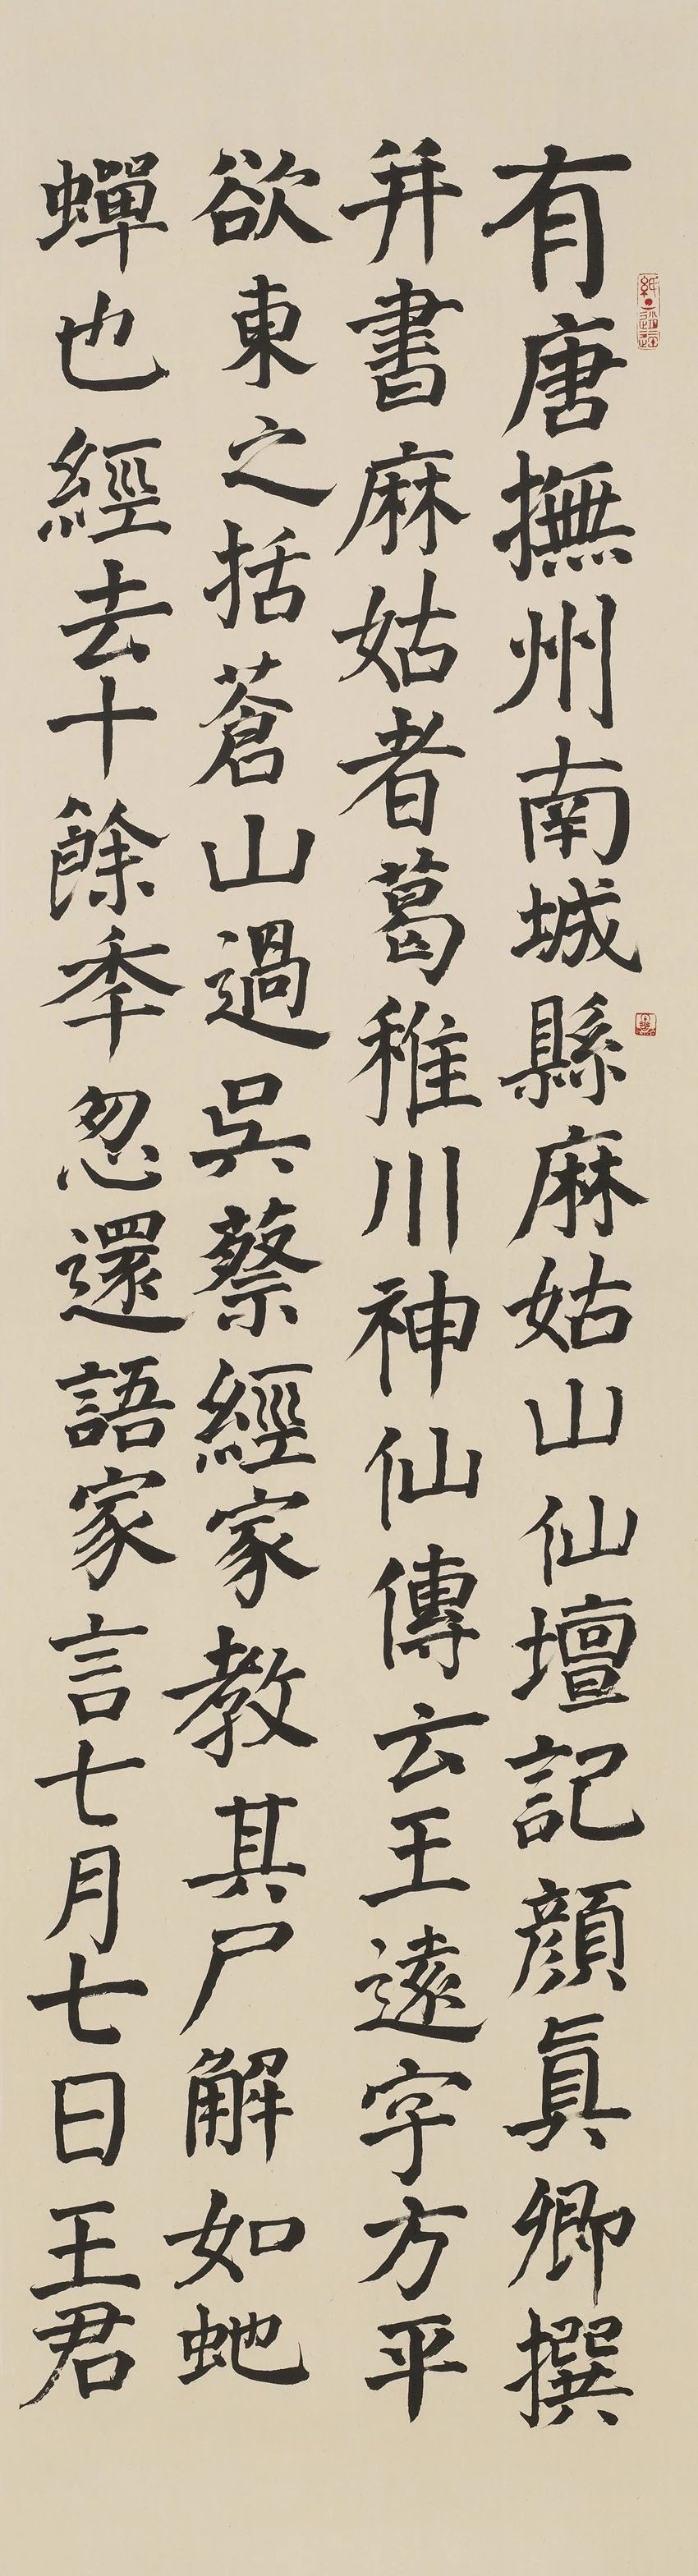 有唐撫州南城縣麻姑山仙壇記顏眞卿撰
并書麻姑者葛稚川神仙傳云王遠字方平
欲東之括蒼山過吳蔡經家教其尸解如虵
蟬也經去十餘季忽還語家言七月七日王君